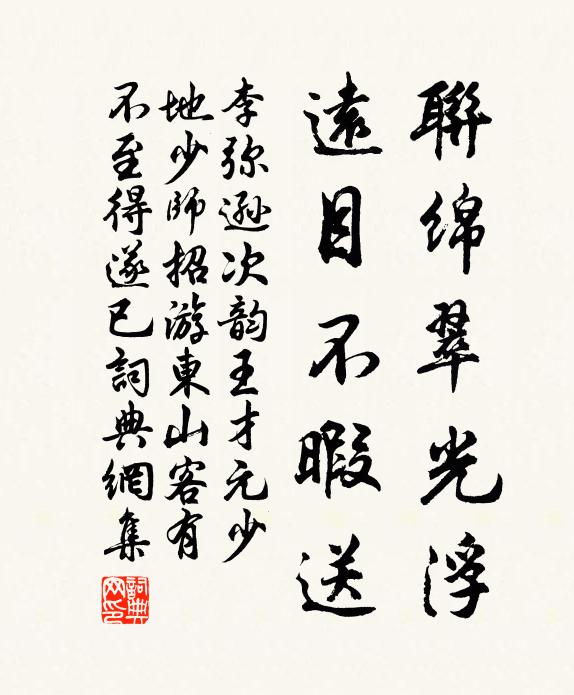 聯綿翠光浮
遠目不暇送
李弥遜次韵王才元少
地少師招游東山客有
不至得遂已詞典網集
詞典网印